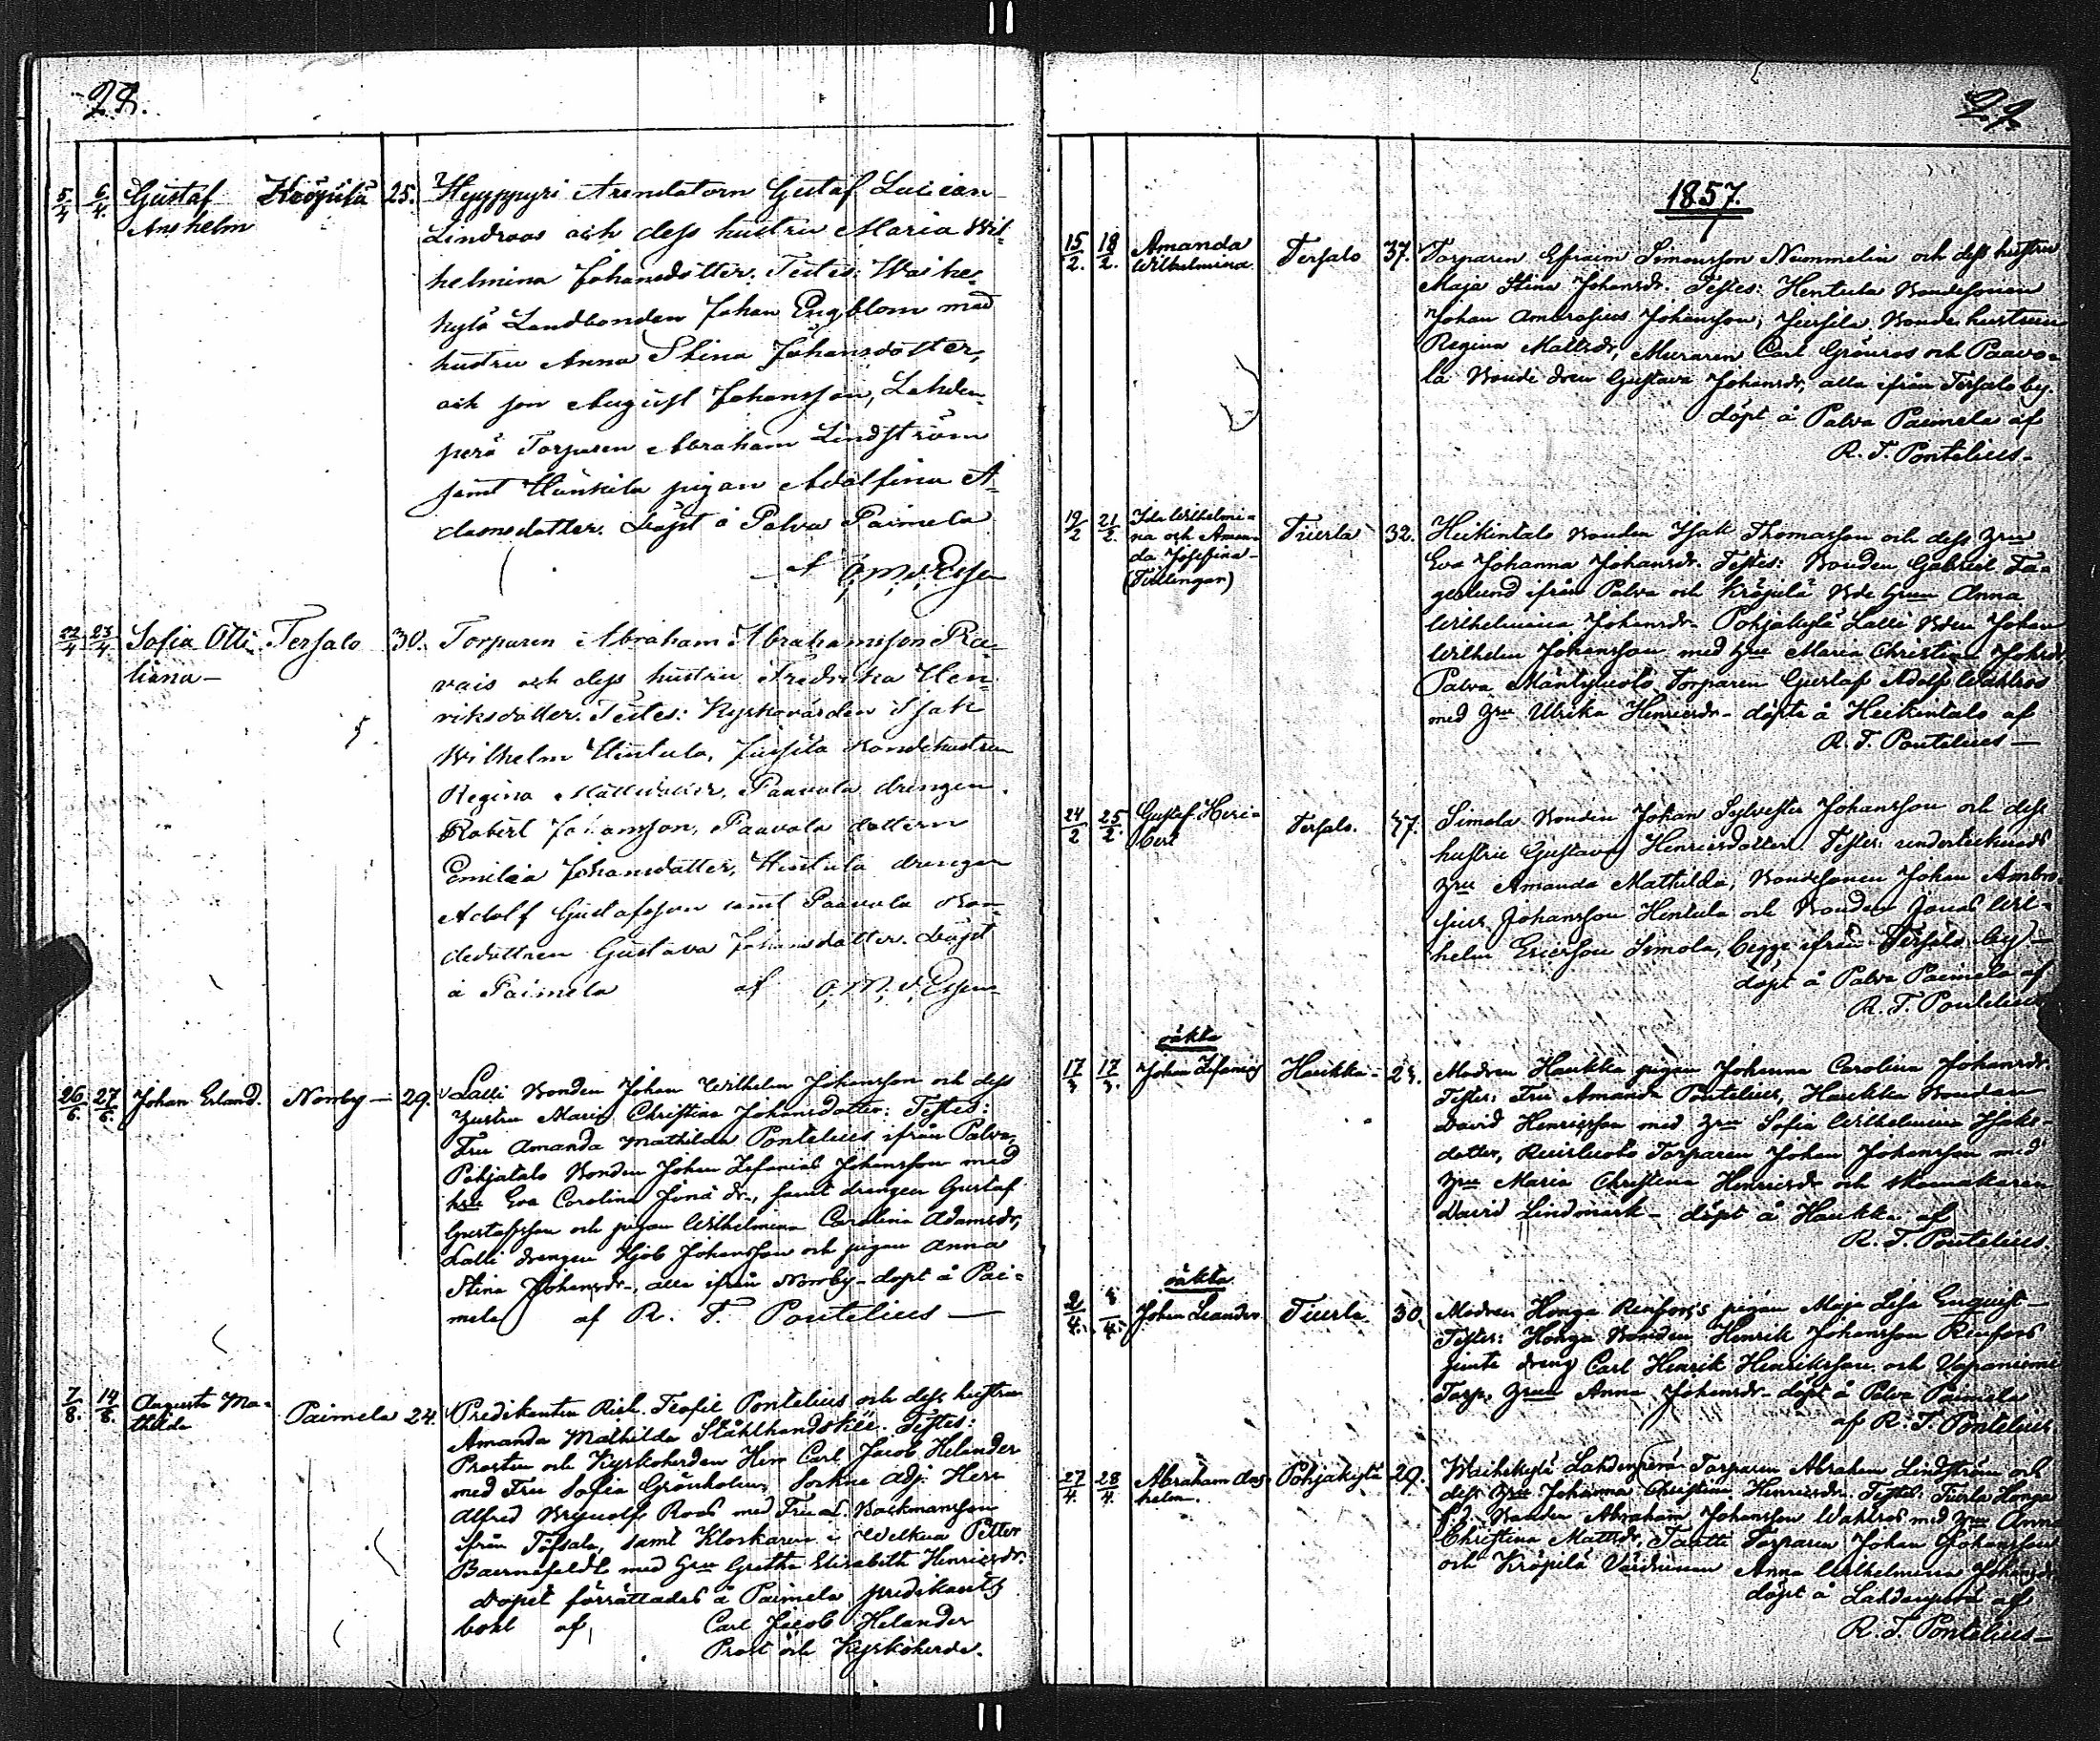 28.
5/4 6/4. Gustaf Anshelm Kröpilä 25. Hyyppyri Arendatorn Gustaf Lucian
Lindroos och dess hustru Maria Wil-
helmina Johansdotter. Testes: Waihe-
kylä Landbonden Johan Engblom med
hustru Anna Stina Johansdotter,
och son August Johansson, Lahden-
perä Torparen Abraham Lindström
samt pigan Adolfina A-
damsdotter. Döpt å Palva Paimela
af O. M. v. Essen
22/4 23/4. Sofia Otti- liana Tersalo 30. Torparen Abraham Abrahamsson Ra-
vais och dess hustru Fredrika Hen-
riksdotter. Testes: Kyrkovärden Isak
Wilhelm Hintula, Jussila Bondehustrun
Regina Mattsdotter, Paavola drengen
Robert Johansson, Paavola dottern
Emilia Johansdotter, Hintula drengen
Adolf Gustafsson samt Paavola Bon-
dedottren Gustava Johansdotter. Döpt
å Paimela af O. M. v. Essen
26/6. 27/6. Johan Erland. Norrby 29. Lalli Bonden Johan Wilhelm Johansson och dess
hustru Maria Christina Johansdotter: Testes:
Fru Amanda Mathilda Pontelius ifrån Palva,
Pohjatalo Bonden Johan Zefanias Johansson med
hru Eva Carolina Jonä dr, samt drengen Gustaf
Gustafsson och pigan Wilhelmina Carolina Adamsdr,
Lalli drengen Hjob Johansson och pigan Anna
Stina Johansdr, alla ifrån Norrby - döpt å Pai-
mela af R. T. Pontelius
7/8. 14/8. Augusta Ma- thilda Paimela 24. Predikanten Rich. Teofil Pontelius och dess hustru
Amanda Mathilda Stålhandske. Testes:
Prosten och Kyrkoherden Herr Carl Jacob Helander
med Fru Sofia Grönholm, Sockne Adj. Herr
Alfred Brynolf Roos med Fru A. Backmansson
ifrån Töfsala, samt Klockaren i Welkua Petter
Baernefeldt med Hru Gretha Elisabeth Henricsdr.
Döpet förrättades å Paimela predikants
bohl af Carl Jacob Helander
Prost och Kyrkoherde.
29.
1857.
15/2. 18/2. Amanda Wilhelmina Tersalo 37. Torparen Efraim Simonsson Nummelin och dess hustru
Maja Stina Johansdr. Testes: Hentula Bondesonen
Johan Ambrosius Johansson, Jussila Bonde hustrun
Regina Mattsdr, Muraren Carl Grönros och Paavo-
la Bonde dren Gustava Johansdr, alla ifrån Tersalo by.
döpt å Palva Paimela af
R. T. Pontelius
19/2 21/2. Ida Wilhelmi- na och Aman- da Josefina (Tvillingar) Tiuerla 32. Heikintalo Bonden Isak Thomasson och dess Hru
Eva Johanna Johansdr. Testes: Bonden Gabriel Fa-
gerlund ifrån Palva och Kröpilä Bde Hrun Anna
Wilhelmina Johansdr. Pohjakylä Lalli Bden Johan
Wilhelm Johansson med Hru Maria Christina Johsdr
Palva Mäntyluoto Torparen Gustaf Adolf Wahlros
med Hru Ulrika Henricsdr. döpte å Heikintalo af
R. T. Pontelius
24/2 25/2. Gustaf Heri- bert Tersalo. 47. Simola Bonden Johan Sylvester Johansson och dess
hustru Gustava Henricsdotter. Testes: undertecknads
Hru Amanda Mathilda, Bondesonen Johan Ambro-
sius Johansson Hentula och Bonden Jonas Wil-
helm Ericsson Simola, begge ifrån Tersalo by
döpt å Palva Paimela af
R. T. Pontelius
oäkta
17/3 17/3. Johan Zefanias Haukka 23. Modren Haukka pigan Johanna Carolina Johansdr
Testes: Fru Amanda Pontelius, Haukka Bonden
David Henricsson med Hru Sofia Wilhelmina Isaks-
dotter, Ruisluoto Torparen Johan Johansson med
Hru Maria Christina Henricsdr och skomakaren
David Lindmark - döpt å Haukka af
R. T. Pontelius.
oäkta
2/4. 3/4. Johan Leander Tiuerla 30. Modren Honga Renfors's pigan Maja Lisa Enquist
Testes: Honga Bonden Henrik Johansson Renfors
jemte dreng Carl Henrik Henriksson och Vapaniemi
Torp. Hrun Anna Johansdr. döpt å Palva Paimela
af R. T. Pontelius
27/4. 28/4. Abraham Ans- helm. Pohjakylä 29. Waihekylä Lahdenperä Torparen Abraham Lindström och
dess Hru Johanna Christina Henricsdr. Testes: Tiuerla Honga
Bonden Abraham Johansson Wahlros med Hru Anna
Christina Mattsdr, Taatte Torparen Johan Johansson
och Kröpilä Värdinnan Anna Wilhelmina Johansdr
döpt å Lahdenperä af
R. T. Pontelius